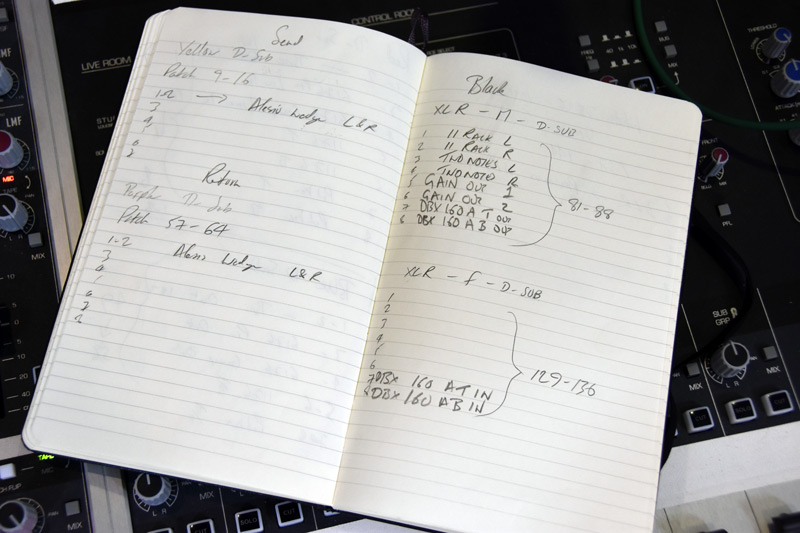 Send
Yellow D-Sub
Patch 9-16
1-2 → Alesis Wedge L&R
3
4
5
6
7
Return
Purple D-Sub
Patch 57-64
1-2 Alesis Wedge L&R
3
4
6
7
8
Black
XLR - M - D-SUB
1 11 RACK L
2 11 RACK R
3 TWO NOTES L
4 TWO NOTES R
5 GAIN OUT 1
6 GAIN OUT 2
7 DBX 160 A T OUT
8 DBX 160 A B OUT
81-88
XLR - F - D-SUB
1
2
3
4
5
6
7 DBX 160 A T IN
8 DBX 160 A B IN
129-136
LIVE ROOM
CONTROL ROOM
THRESHOLD
ATTACK
FRONT
PFL
SUB GRP
MIX
L R
LMF
MIC
SOLO
CUT